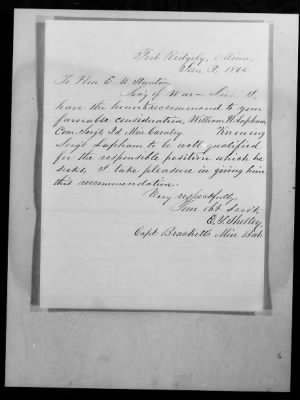 Fort Ridgely, Minn.
Jan 3, 1865.
To Hon E. M. Stanton
Secy of War - Sir I
have the honor recommend to your
favorable consideration, William H. Lapham
Com. Sergt 2d Min Cavalry. Knowing
Sergt Lapham to be well qualified
for the responsible position which he
seeks, I take pleasure in giving him
this recommendation.
Very respectfully
Your obt Servt,
E. Y. Shelley
Capt Bracketts Min Bat